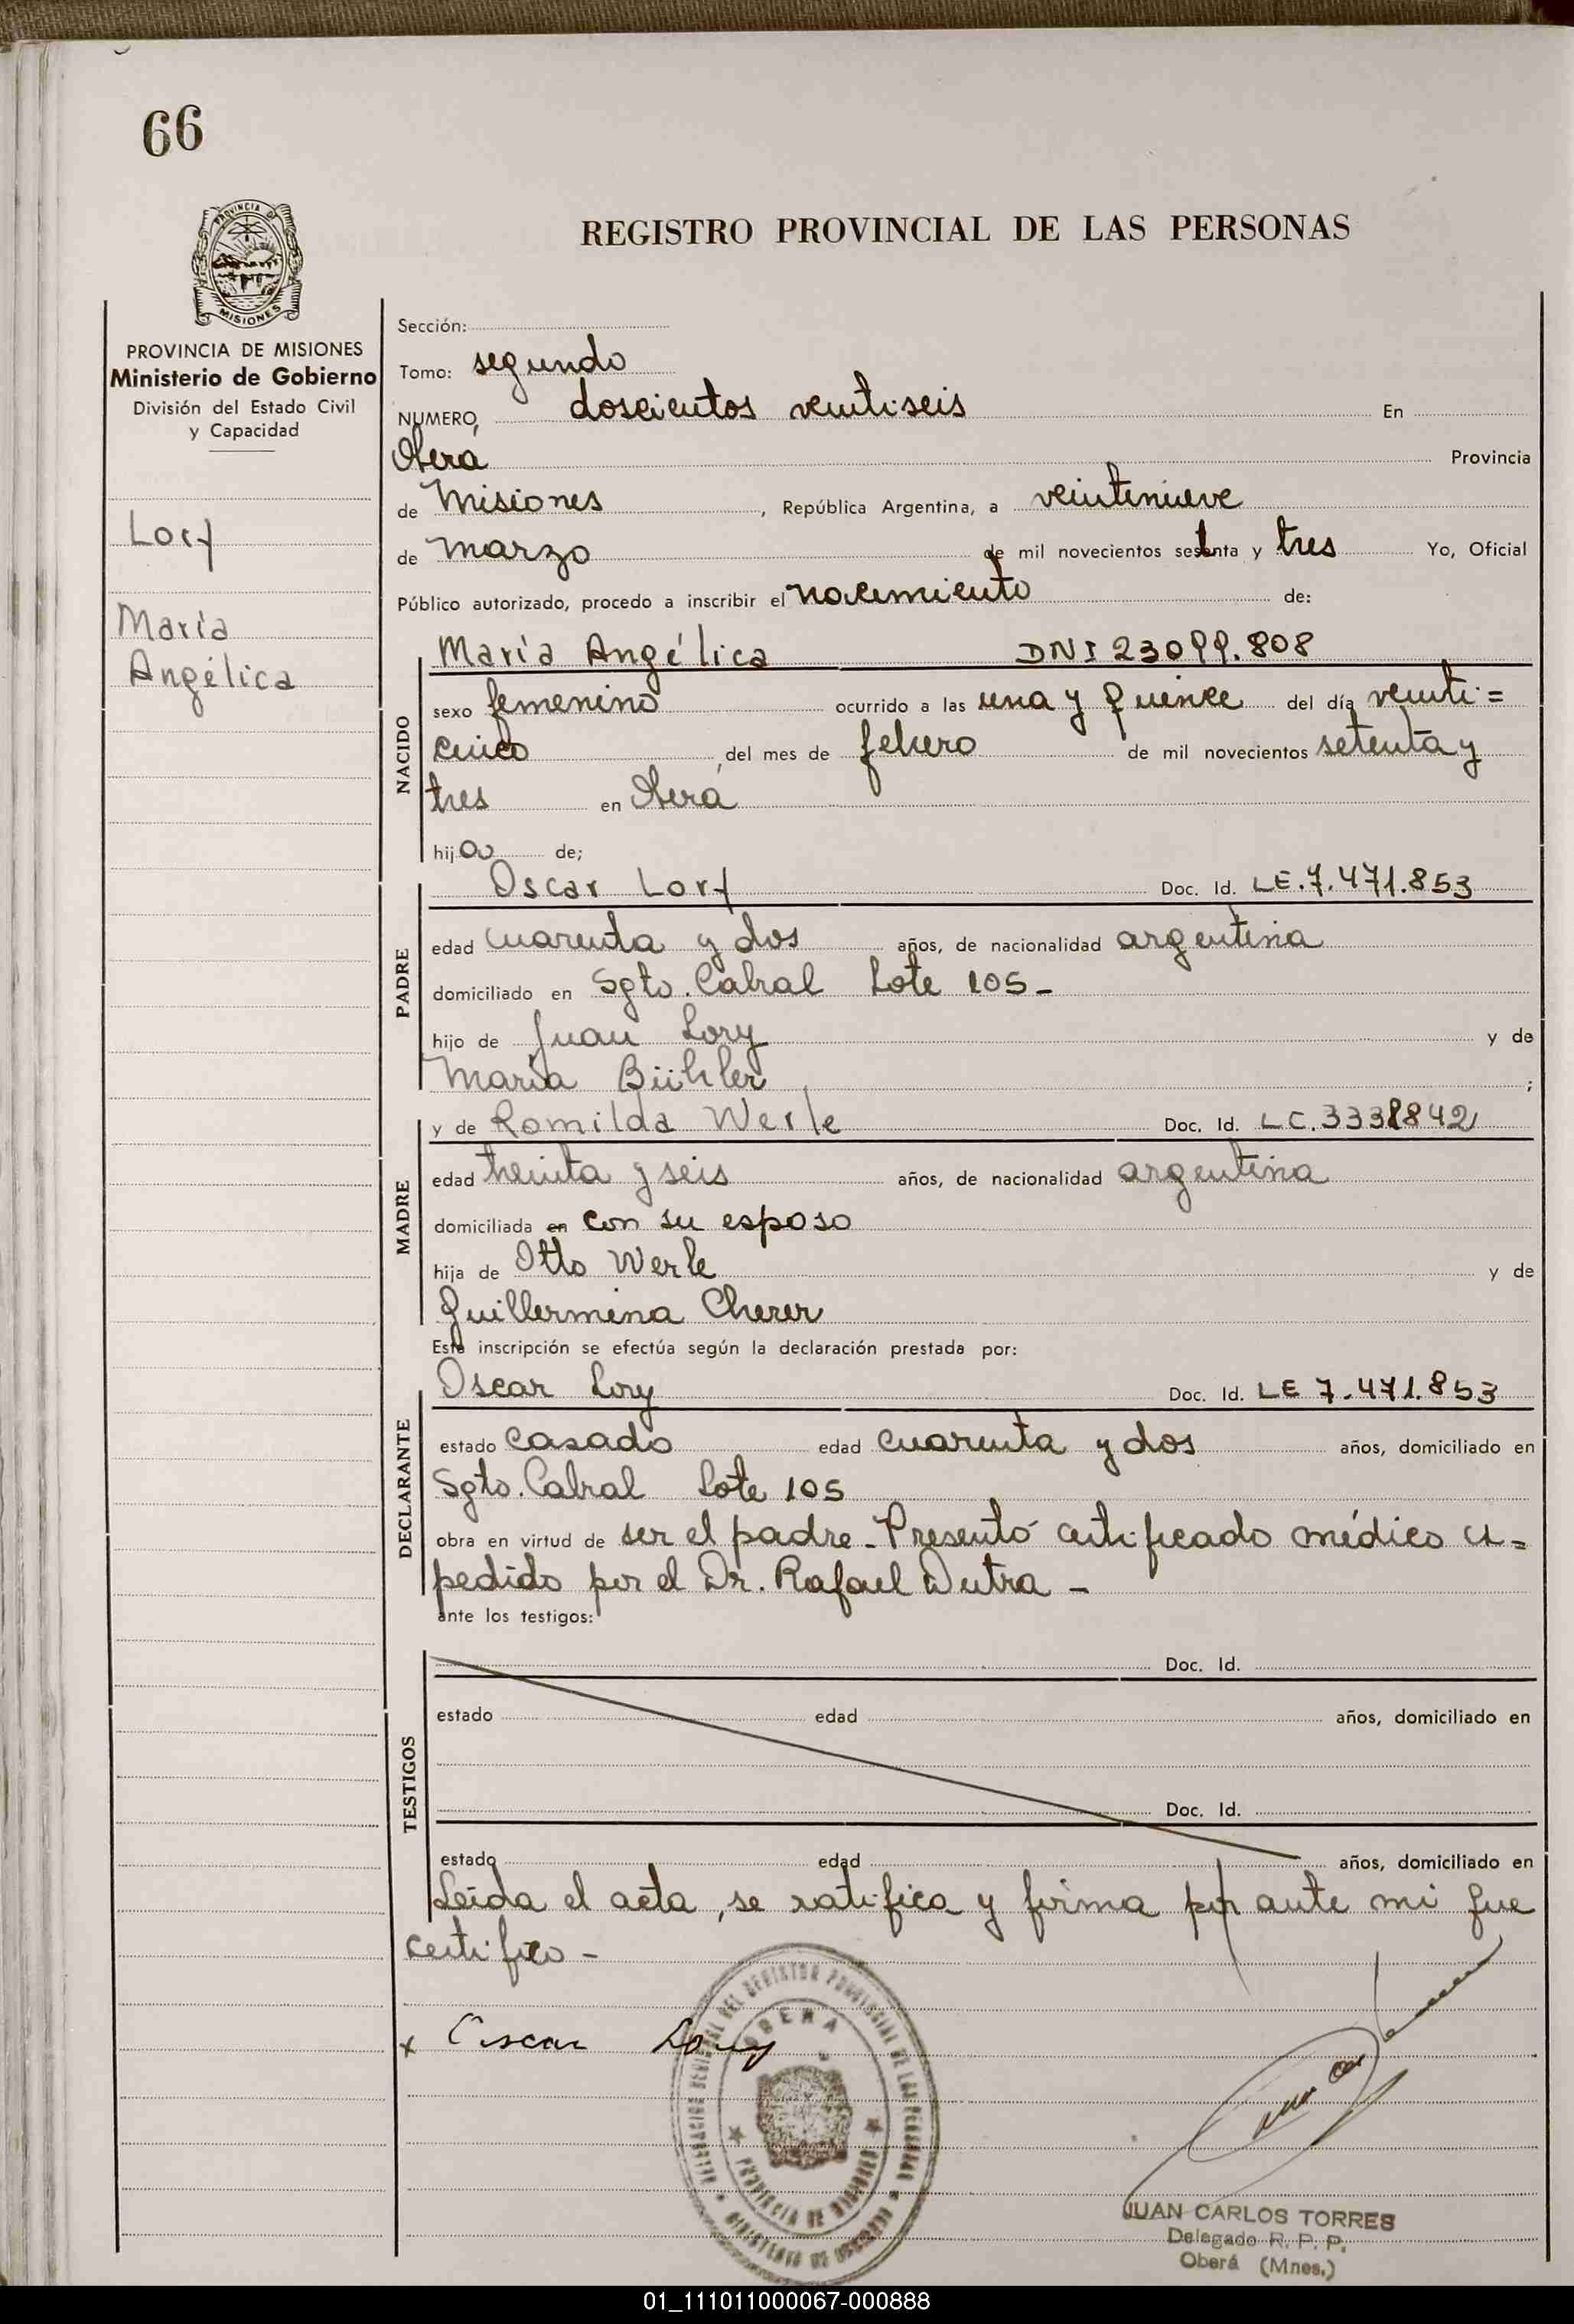 66
PROVINCIA DE
MISIONES
REGISTRO PROVINCIAL DE LAS PERSONAS
PROVINCIA DE MISIONES
Ministerio de Gobierno
División del Estado Civil
y Capacidad
Lory
María
Angélica
Sección:
Tomo: segundo
NUMERO, doscientos veintiseis En
Oberá Provincia
de Misiones, República Argentina, a veintenueve
de marzo de mil novecientos setenta y tres Yo, Oficial
Público autorizado, procedo a inscribir el nacimiento de:
NACIDO
María Angélica DNI 23099.808
sexo femenino ocurrido a las una y quince del día veinti=
cinco del mes de febrero de mil novecientos setenta y
tres en Oberá
hija de;
PADRE
Oscar Lory Doc. Id. LE.7.471.853
edad cuarenta y dos años, de nacionalidad argentina
domiciliado en Sgto. Cabral Lote 105-
hijo de Juan Lory y de
María Bühler ;
MADRE
y de Romilda Werle Doc. Id. LC.3338842
edad treinta y seis años, de nacionalidad argentina
domiciliada en con su esposo
hija de Otto Werle y de
Guillermina Cherer
Esta inscripción se efectúa según la declaración prestada por:
DECLARANTE
Oscar Lory Doc. Id. LE 7.471.853
estado casado edad cuarenta y dos años, domiciliado en
Sgto. Cabral Lote 105
obra en virtud de ser el padre-Presentó certificado médico ex=
pedido por el Dr. Rafael Dutra -
ante los testigos:
TESTIGOS
Doc. Id.
estado edad años, domiciliado en
Doc. Id.
estado edad años, domiciliado en
Leída el acta, se ratifica y firma por ante mi que
certifico -
x Oscar Lory
OBERA
PROVINCIA DE MISIONES
JUAN CARLOS TORRES
Delegado R. P. P.
Oberá (Mnes.)
01_111011000067-000888